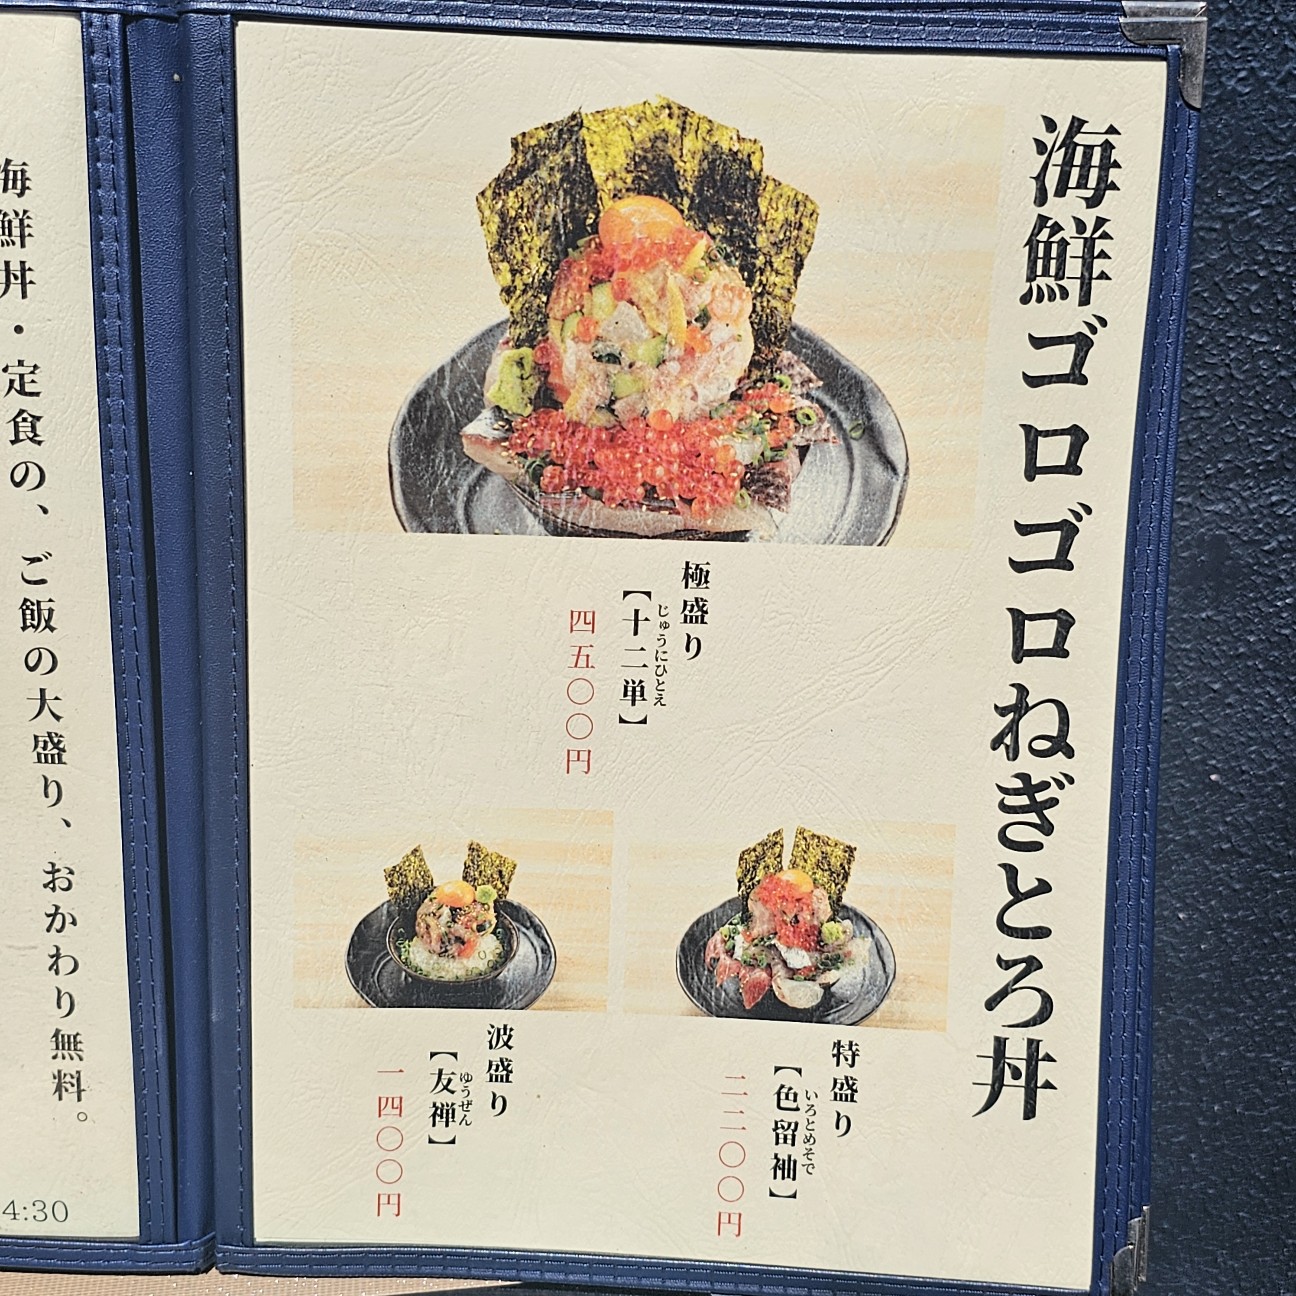 海鮮ゴロゴロねぎとろ丼
極盛り
じゅうにひとえ
【十二単】
四五〇〇円
特盛り
いろとめそで
【色留袖】
二二〇〇円
波盛り
ゆうぜん
【友禅】
一四〇〇円
海鮮丼・定食の、ご飯の大盛り、おかわり無料。
4:30